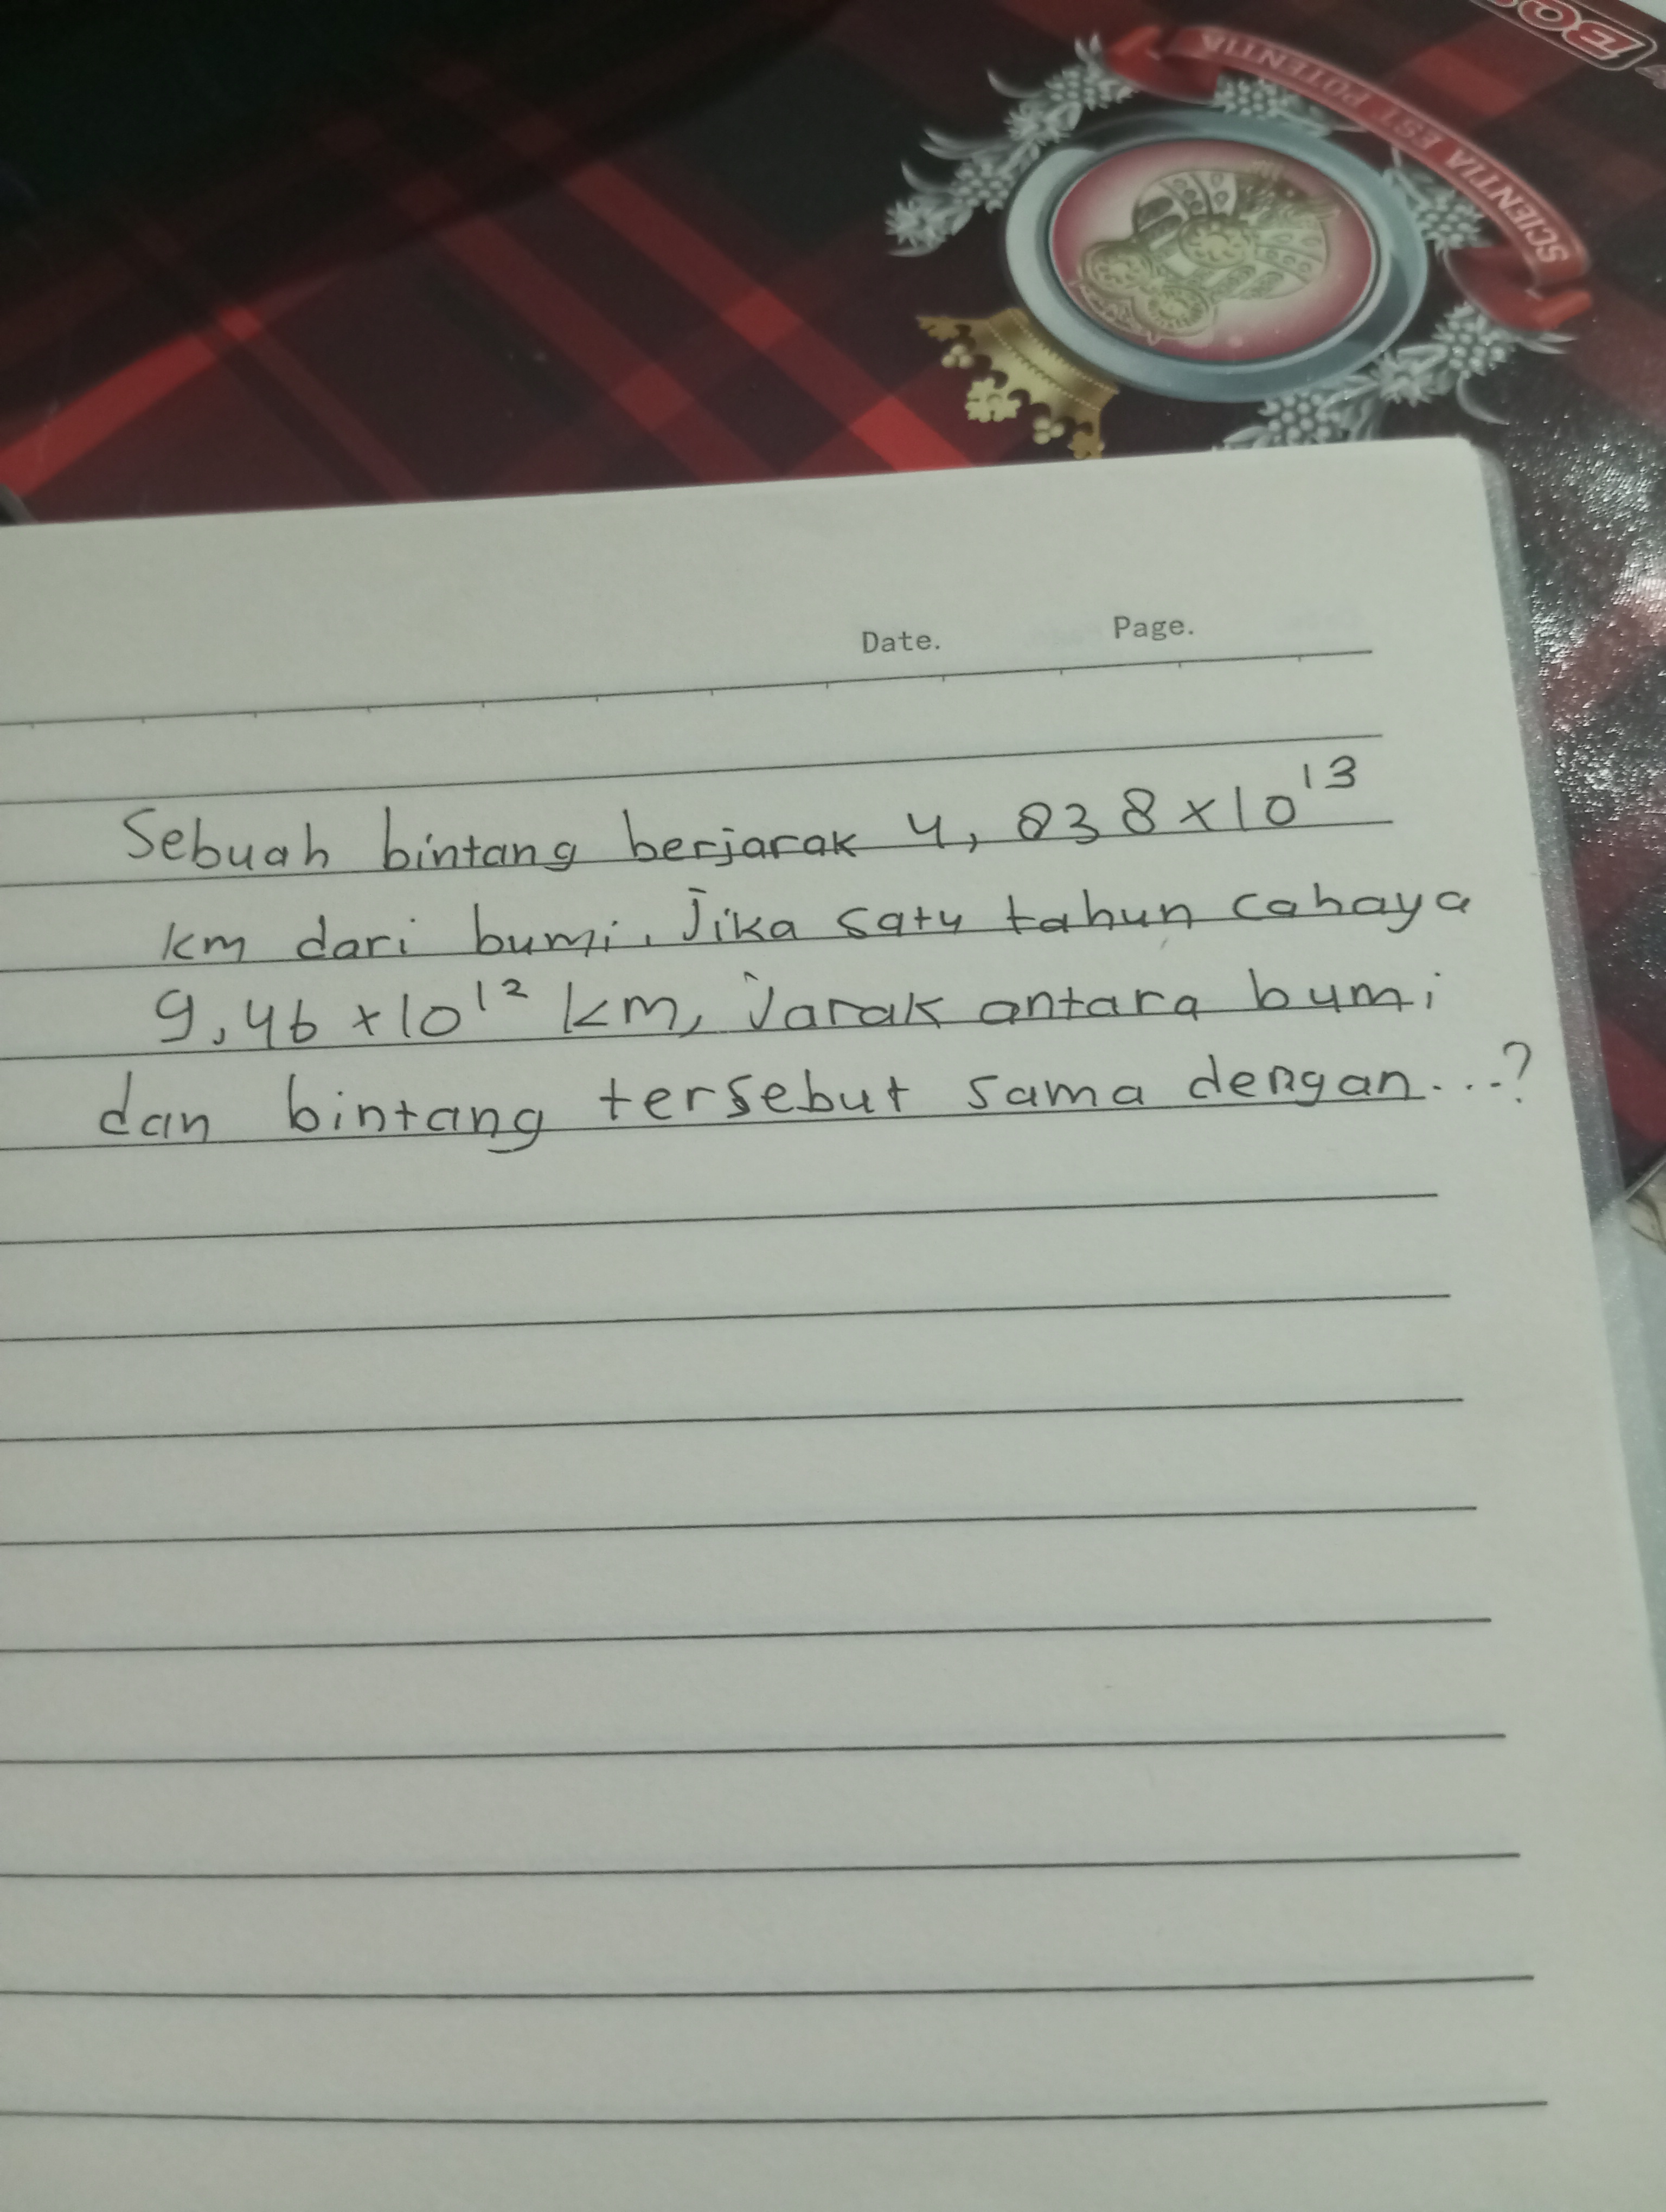 BO
SCIENTIA EST POTENTIA
Date. Page.
Sebuah bintang berjarak 4, 838 x 10¹³
km dari bumi. Jika satu tahun cahaya
9,46 x 10¹² km, Jarak antara bumi
dan bintang tersebut sama dengan...?